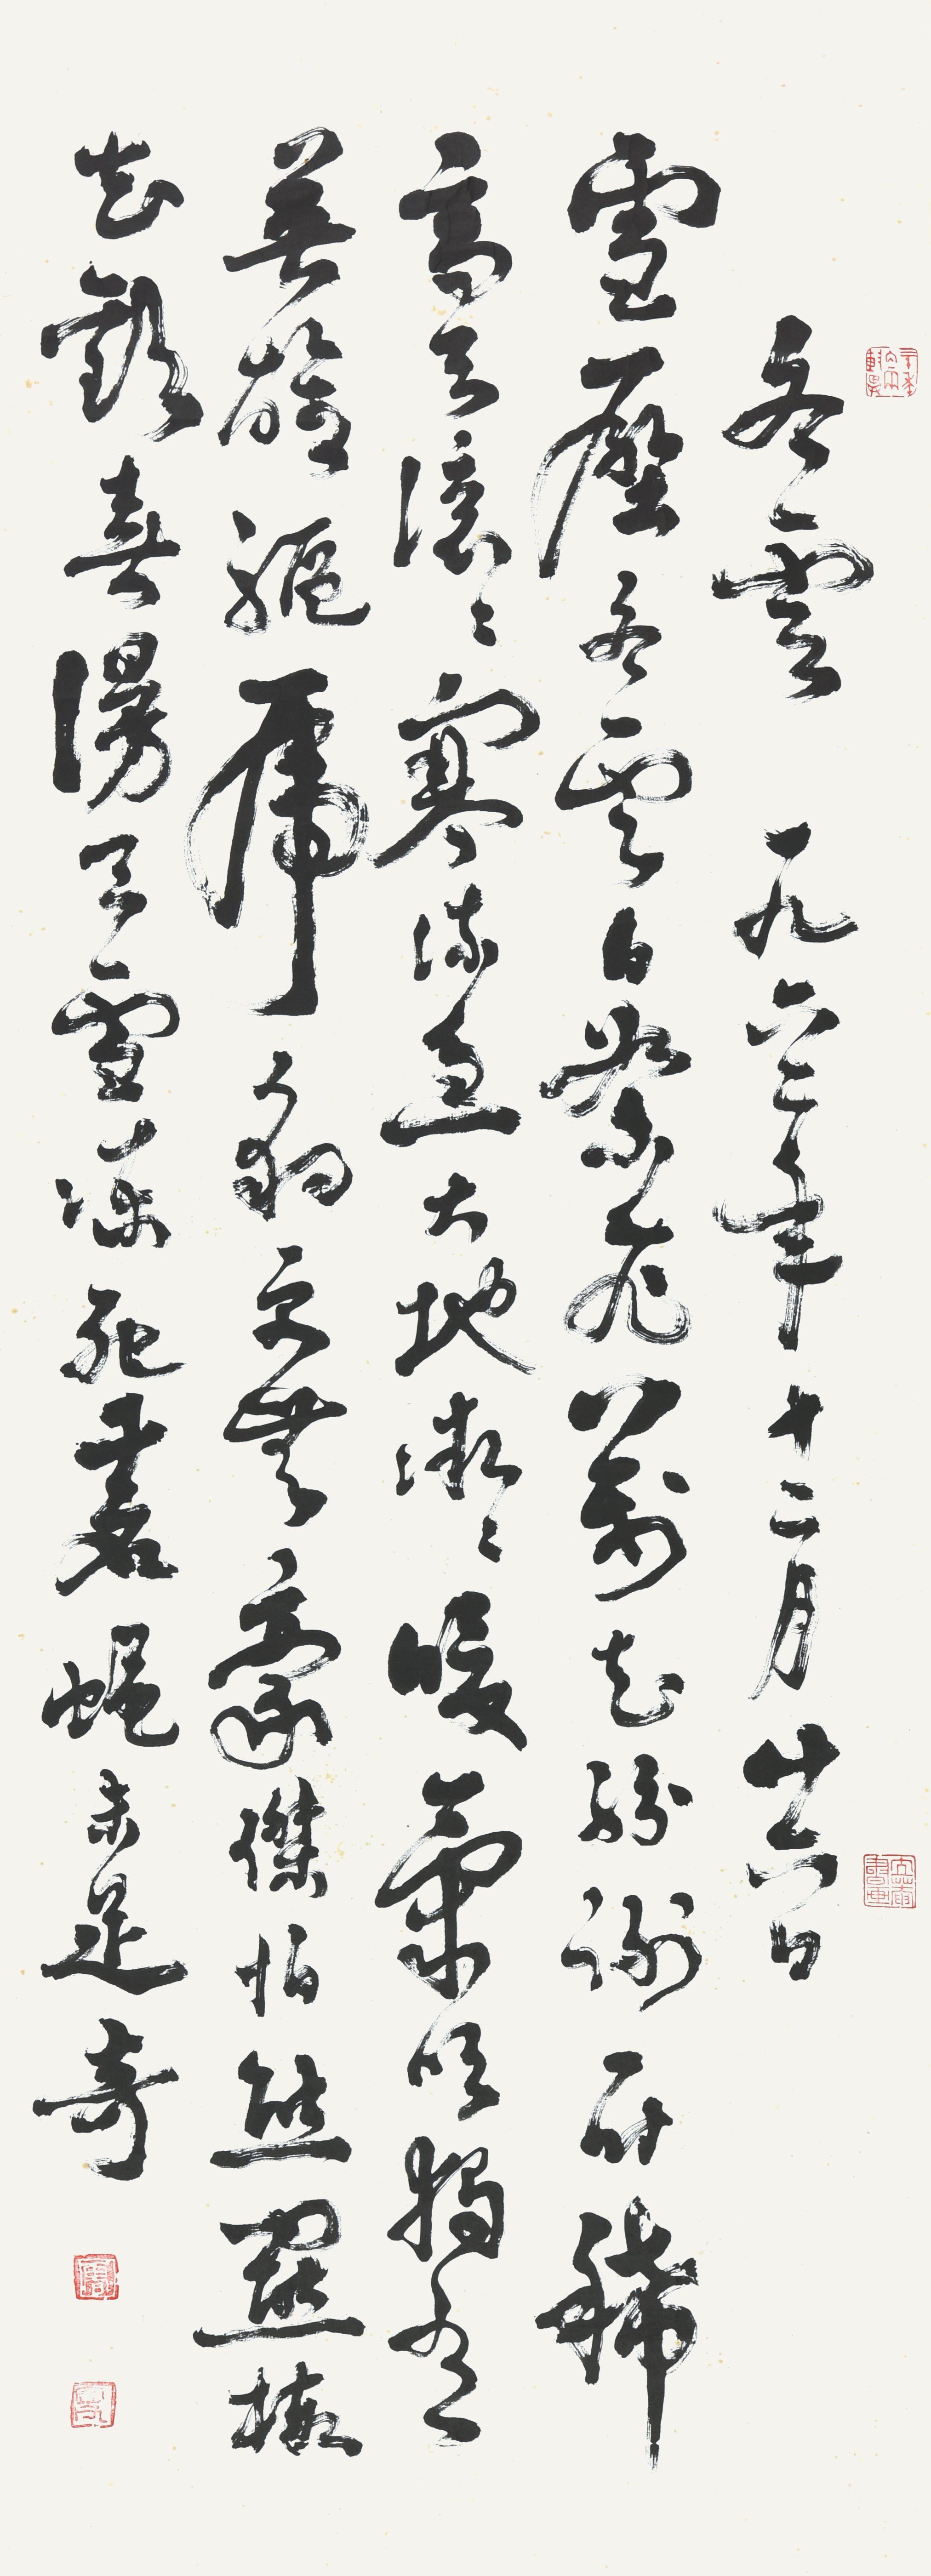 冬雲 一九六二年十二月廿六日
雪壓冬雲白絮飛萬花紛謝一時稀
高天滾〻寒流急大地微〻暖氣吹獨有
英雄驅虎豹更無豪傑怕熊羆梅
花歡喜漫天雪凍死蒼蠅未足奇